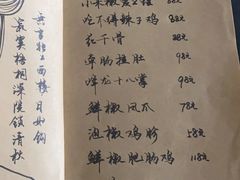 无言独上西楼 月如钩
寂寞梧桐深院锁清秋
吃不饼辣子鸡 88元
花千骨 38元
98元
降龙十八掌 98元
鲜椒凤爪 78元
泡椒鸡胗 58元
鲜椒肥肠鸡 118元